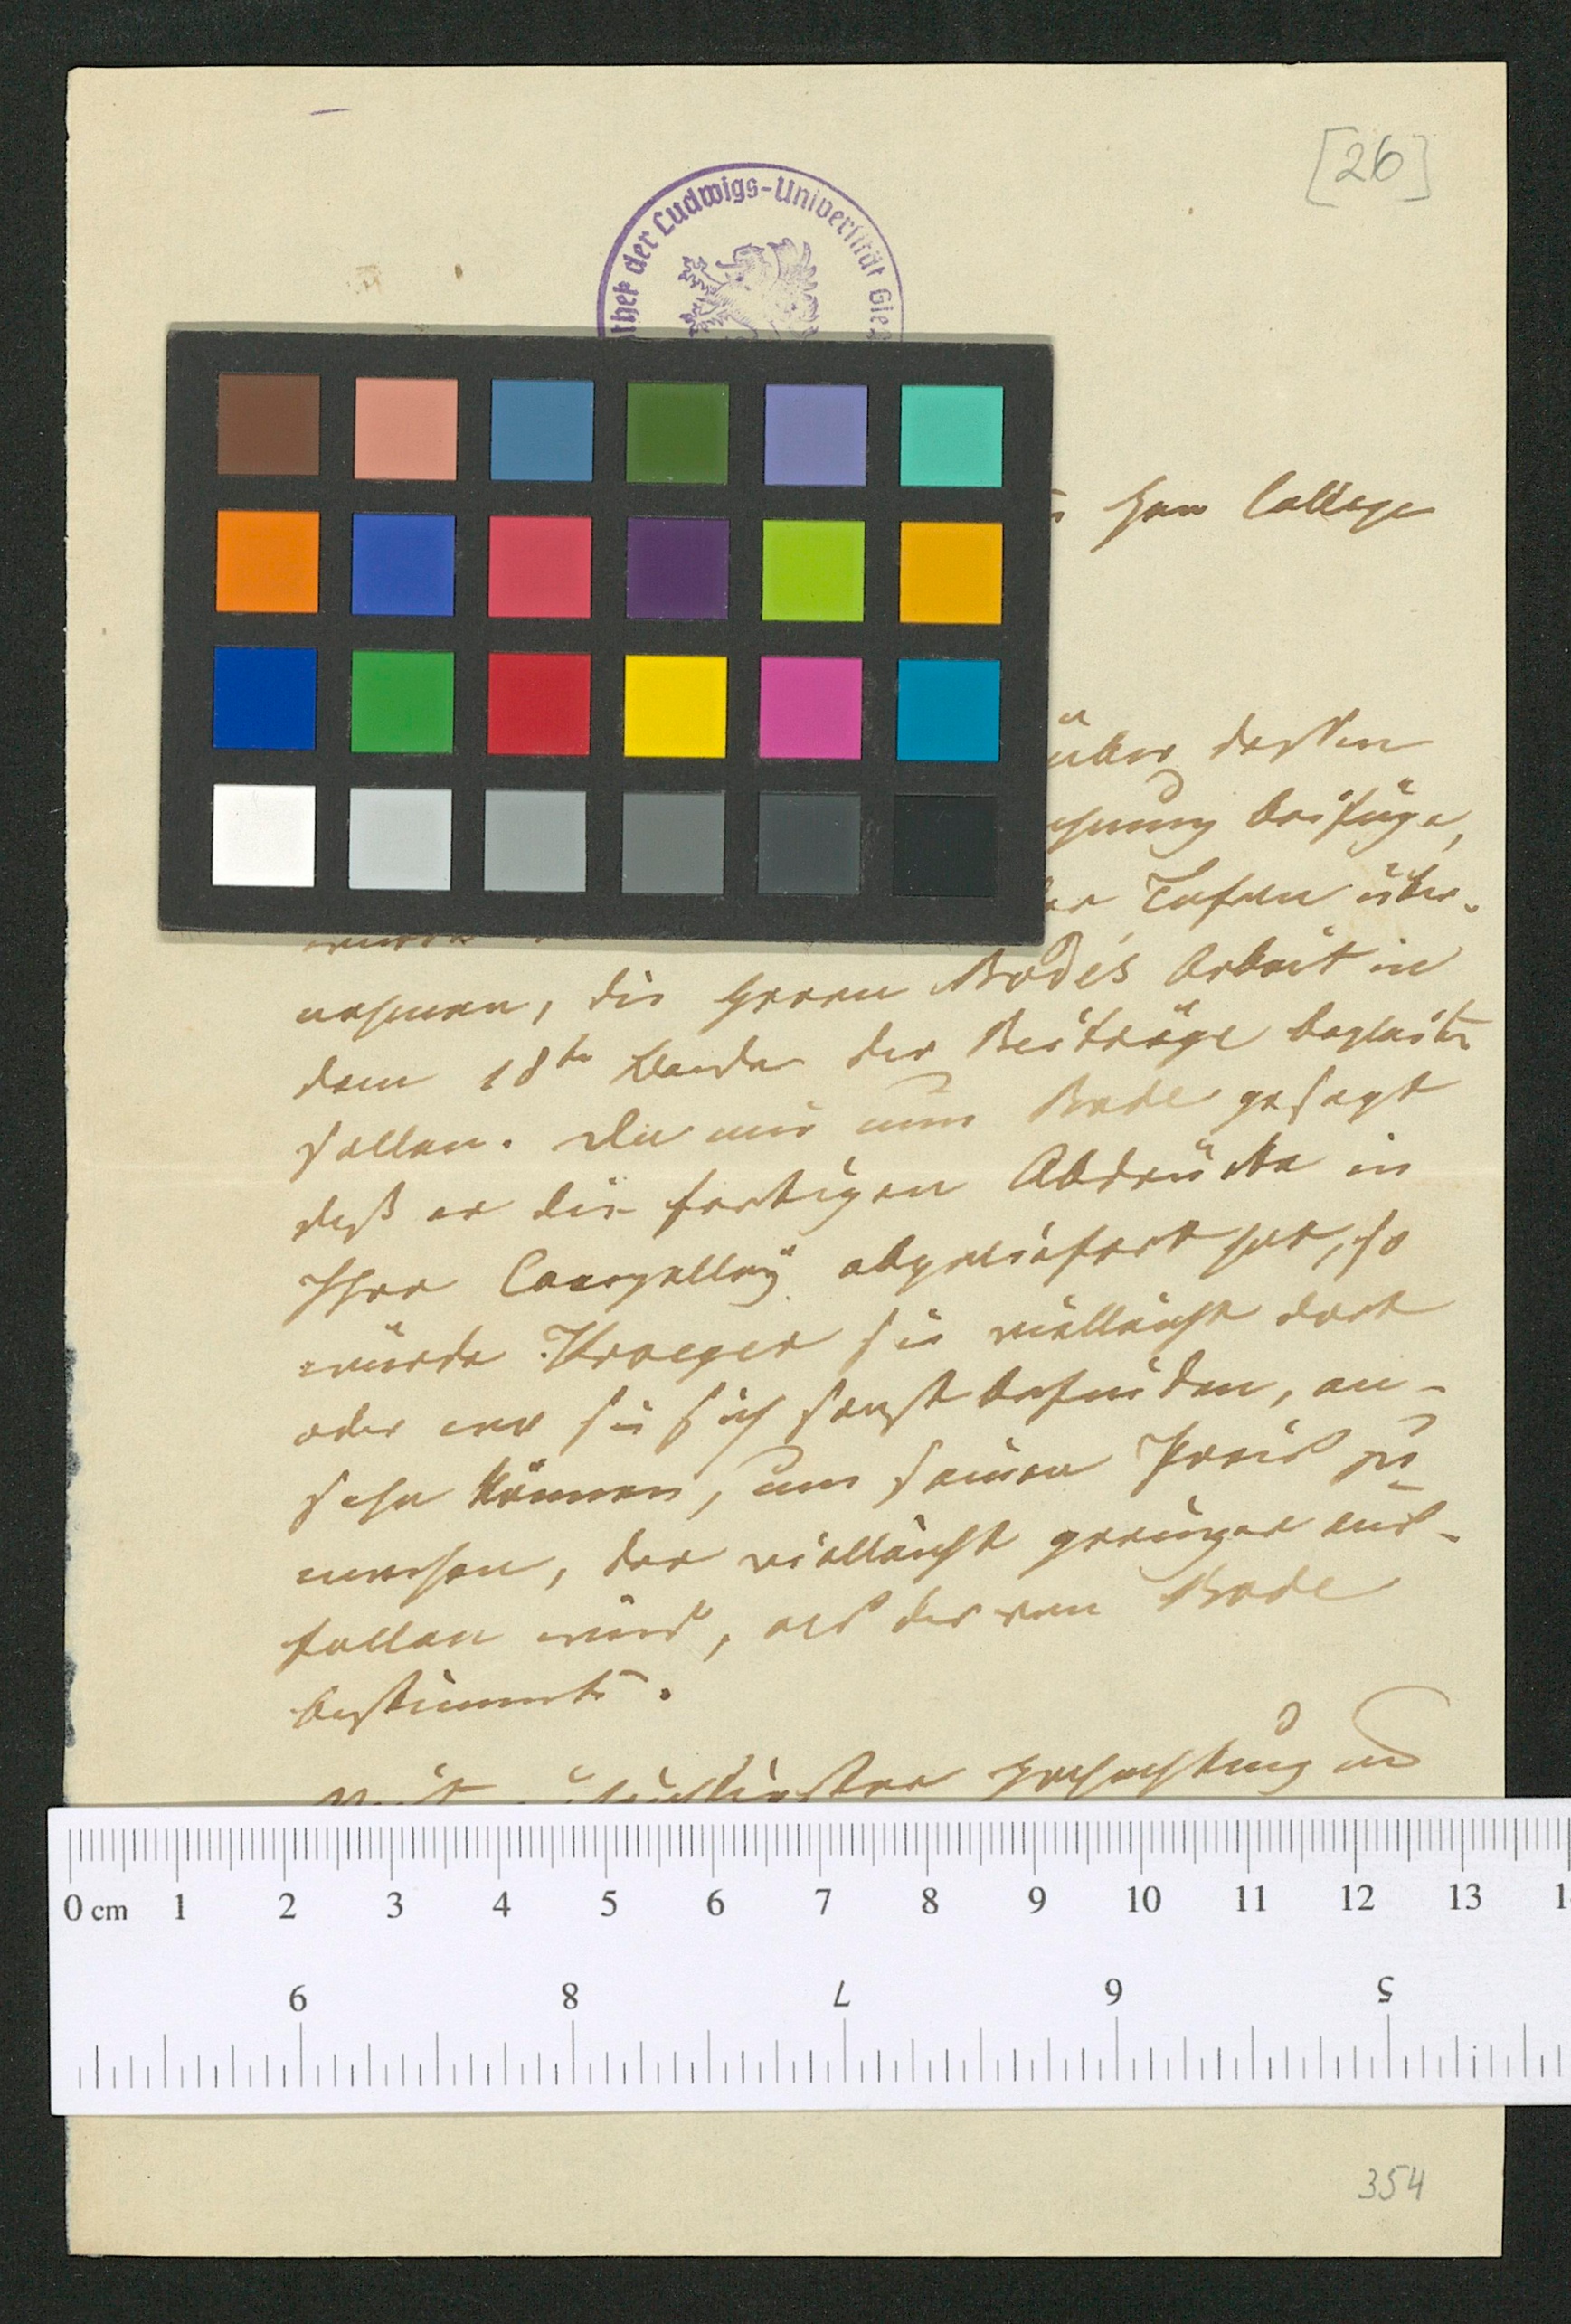 [26]
der Ludwigs-Universität Gie
Herr College
über dessen
beifüge,
Tafeln über-
nehmen, die Herrn Bode's Arbeit in
dem 18ten Bande der Beiträge begleiten
sollen. Da mir nun Bode gesagt
daß er die fertigen Abdrücke in
Ihre Canzelley abgeliefert hat, so
würde Kroeger sie vielleicht dort
oder wo sie sich sonst befinden, an-
sehn können, um seinen Preis zu
machen, der vielleicht geringer aus-
fallen wird, als der von Bode
bestimmte.
Hochachtung
0 cm 1 2 3 4 5 6 7 8 9 10 11 12 13
9 8 7 6 5
354